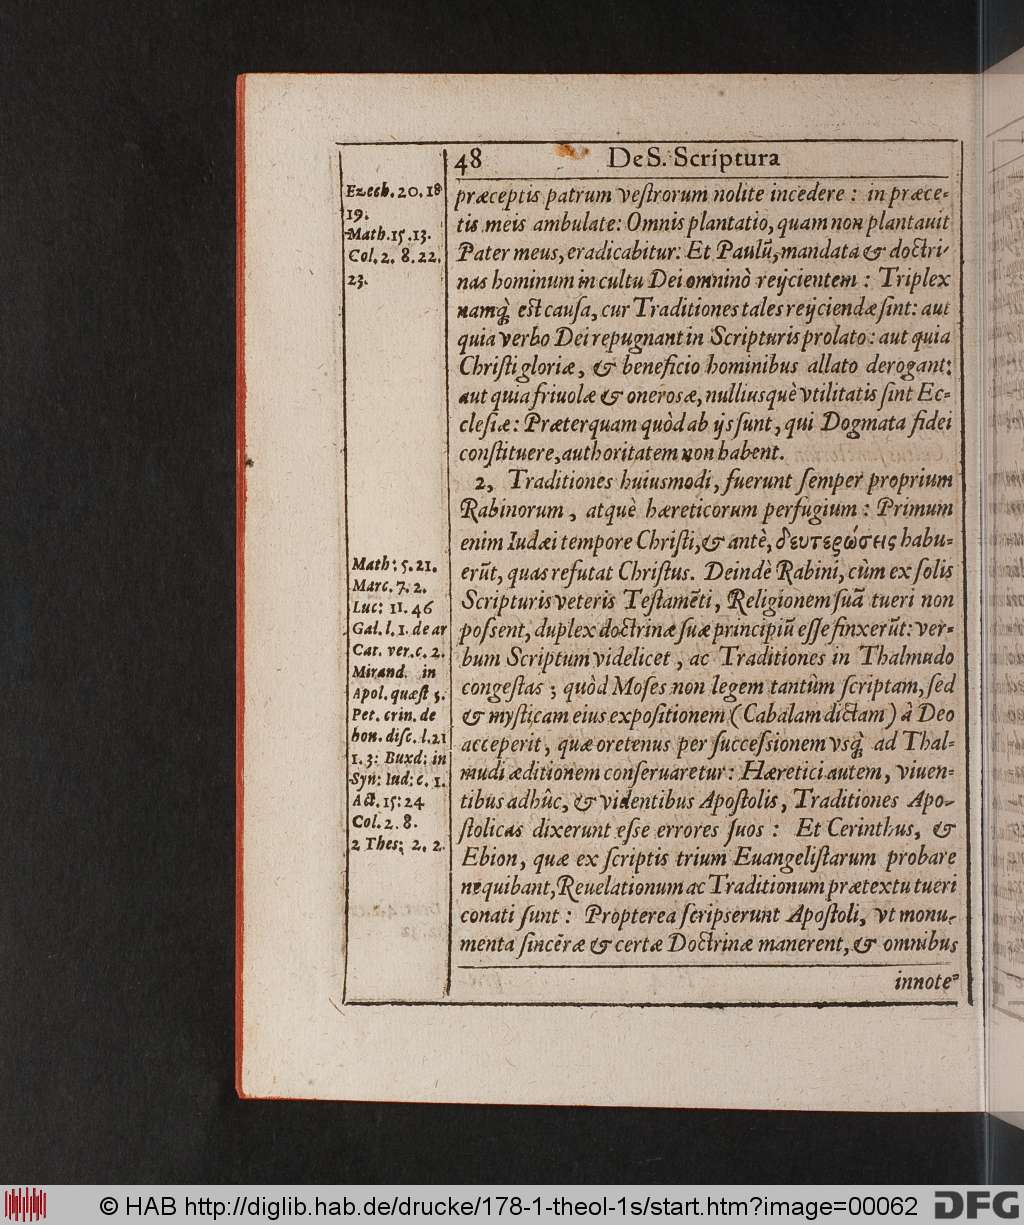 48 De S. Scriptura
Ezech. 20. 18
19.
Math. 15. 13.
Col. 2. 8. 22.
23.
præceptis patrum veſtrorum nolite incedere : in præce-
tis meis ambulate: Omnis plantatio, quam non plantauit
Pater meus, eradicabitur: Et Paulũ, mandata & doctri-
nas hominum in cultu Dei omninò reijcientem : Triplex
namq́ʒ eſt cauſa, cur Traditiones tales reijciendæ ſint: aut
quia verbo Dei repugnant in Scripturis prolato: aut quia
Chriſti gloriæ, & beneficio hominibus allato derogant:
aut quia friuolæ & onerosæ, nulliusquè vtilitatis ſint Ec-
cleſiæ: Præterquam quòd ab ijs ſunt, qui Dogmata fidei
conſtituere, authoritatem non habent.
2, Traditiones huiusmodi, fuerunt ſemper proprium
Rabinorum, atquè hæreticorum perfugium : Primum
enim Iudæi tempore Chriſti, & antè, δευτερώσεις habu-
erũt, quas refutat Chriſtus. Deindè Rabini, cùm ex ſolis
Scripturis veteris Teſtamẽti, Religionem ſuã tueri non
poſsent, duplex doctrinæ ſuæ principiũ eſſe finxerũt: ver-
bum Scriptum videlicet, ac Traditiones in Thalmudo
congeſtas; quòd Moſes non legem tantùm ſcriptam, ſed
& myſticam eius expoſitionem (Cabalam dictam) à Deo
acceperit, quæ oretenus per ſucceſsionem vsq́ʒ ad Thal-
mudi æditionem conſeruaretur: Hæretici autem, viuen-
tibus adhûc, & videntibus Apoſtolis, Traditiones Apo-
ſtolicas dixerunt eſse errores ſuos : Et Cerinthus, &
Ebion, quæ ex ſcriptis trium Euangeliſtarum probare
nequibant, Reuelationum ac Traditionum prætextu tueri
conati ſunt : Propterea ſcripserunt Apoſtoli, vt monu-
menta ſincẽræ & certæ Doctrinæ manerent, & omnibus
innote-
Math: 5. 21.
Marc. 7. 2.
Luc: 11. 46
Gal. l. 1. de ar
Cat. ver. c. 2.
Mirand. in
Apol. quæſt 5.
Pet. crin. de
hon. diſc. l. 21
1. 3: Buxd: in
Syn: Iud: c. 1.
Act. 15: 24
Col. 2. 8.
2 Thes; 2. 2.
© HAB http://diglib.hab.de/drucke/178-1-theol-1s/start.htm?image=00062
DFG